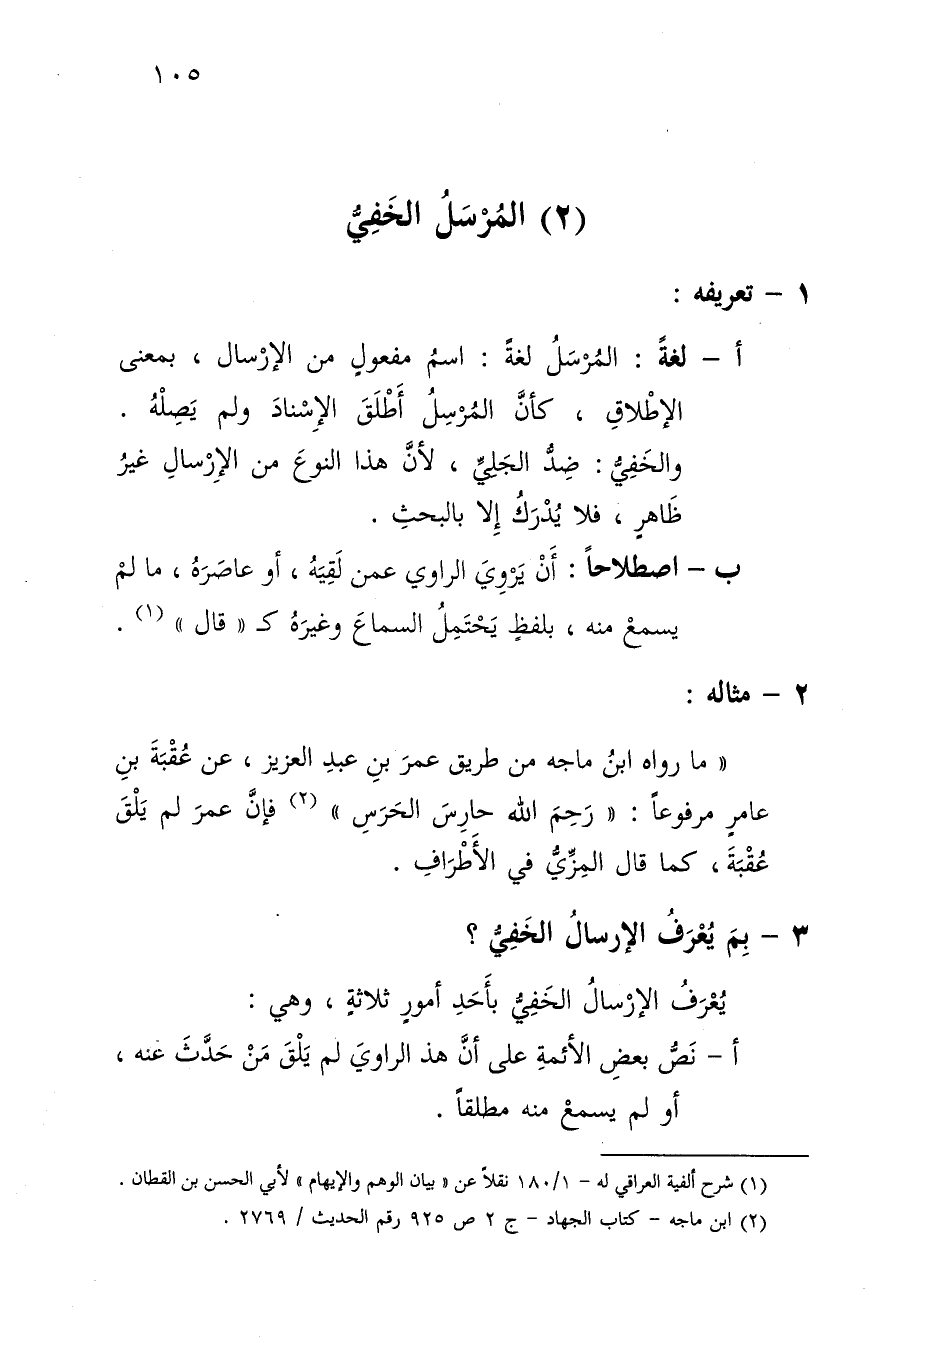 ١٠٥
(٢) المُرْسَلُ الخَفِيُّ
١ – تعريفه :
أ – لغةً : المُرْسَلُ لغةً : اسمُ مفعولٍ من الإرْسال ، بمعنى
الإطْلاقِ ، كأنَّ المُرْسِلُ أَطْلَقَ الإِسْنادَ ولم يَصِلْهُ .
والخَفِيُّ : ضِدُّ الجَلِيِّ ، لأنَّ هذا النوعَ من الإِرْسالِ غيرُ
ظَاهرٍ ، فلا يُدْرَكُ إِلا بالبحثِ .
ب – اصطلاحاً : أَنْ يَرْوِيَ الراوي عمن لَقِيَهُ ، أو عاصَرَهُ ، ما لمْ
يسمعْ منه ، بلفظٍ يَحْتَمِلُ السماعَ وغيرَهُ كـ « قال » (١) .
٢ – مثاله :
« ما رواه ابنُ ماجه من طريق عمرَ بنِ عبدِ العزيز ، عن عُقْبَةَ بنِ
عامرٍ مرفوعاً : « رَحِمَ الله حارِسَ الحَرَسِ » (٢) فإنَّ عمرَ لم يَلْقَ
عُقْبَةَ ، كما قال المِزِّيُّ في الأَطْرَافِ .
٣ – بِمَ يُعْرَفُ الإرسالُ الخَفِيُّ ؟
يُعْرَفُ الإرْسالُ الخَفِيُّ بأَحَدِ أمورٍ ثلاثةٍ ، وهي :
أ – نَصُّ بعضِ الأئمةِ على أنَّ هذ الراويَ لم يَلْقَ مَنْ حَدَّثَ عنه ،
أو لم يسمعْ منه مطلقاً .
(١) شرح ألفية العراقي له – ١/١٨٠ نقلاً عن « بيان الوهم والإيهام » لأبي الحسن بن القطان .
(٢) ابن ماجه – كتاب الجهاد – ج ٢ ص ٩٢٥ رقم الحديث / ٢٧٦٩ .